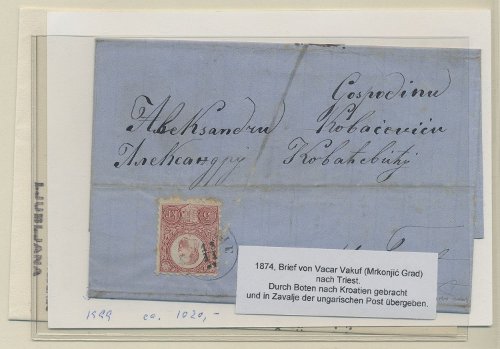 Gospodinu
Aleksandru Kovačeviću
Александру Ковачевићу
LJUBLJANA
1874, Brief von Vacar Vakuf (Mrkonjić Grad)
nach Triest.
Durch Boten nach Kroatien gebracht
und in Zavalje der ungarischen Post übergeben.
1999 ca. 1020,-